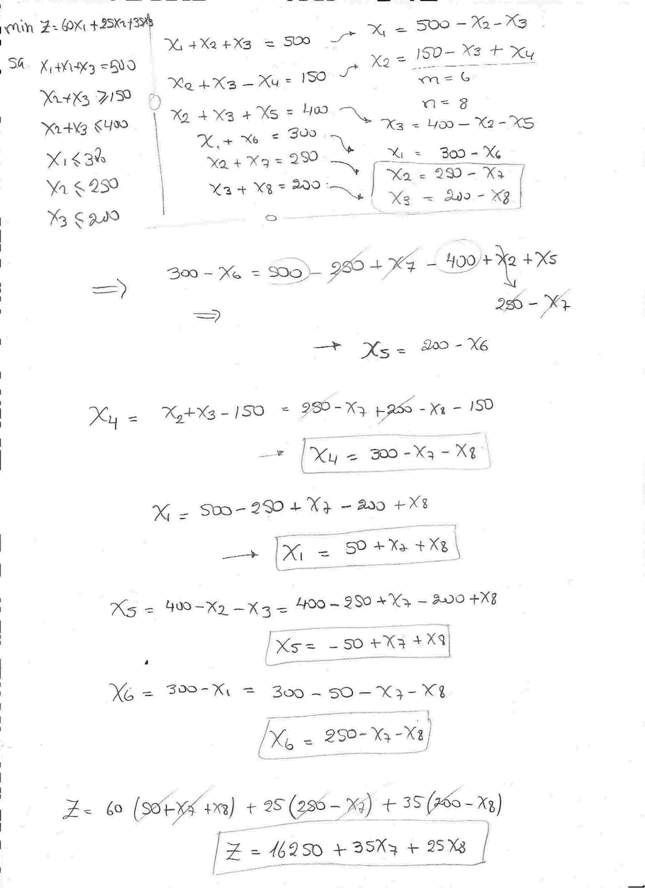 min Z=60X1+25X2+35X3
sa X1+X1+X3=500
X2+X3 ≥150
X2+X3 ≤400
X1 ≤
X2 ≤ 250
X3 ≤ 200
X1 + X2 + X3 = 500 → X1 = 500 - X2 - X3
X2 + X3 - X4 = 150 → X2 = 150 - X3 + X4
m = 6
n = 8
X2 + X3 + X5 = 400 → X3 = 400 - X2 - X5
X1 + X6 = 300 → X1 = 300 - X6
X2 + X7 = 250 → X2 = 250 - X7
X3 + X8 = 200 → X3 = 200 - X8
⇒ 300 - X6 = 500 - 250 + X7 - 400 + X2 + X5
250 - X7
⇒
→ X5 = 200 - X6
X4 = X2+X3-150 = 250-X7+200-X8-150
→ X4 = 300-X7-X8
X1 = 500-250+X7-200+X8
→ X1 = 50+X7+X8
X5 = 400-X2-X3 = 400-250+X7-200+X8
X5 = -50+X7+X8
X6 = 300-X1 = 300-50-X7-X8
X6 = 250-X7-X8
Z = 60 (50+X7+X8) + 25(250-X7) + 35(200-X8)
Z = 16250 + 35X7 + 25X8